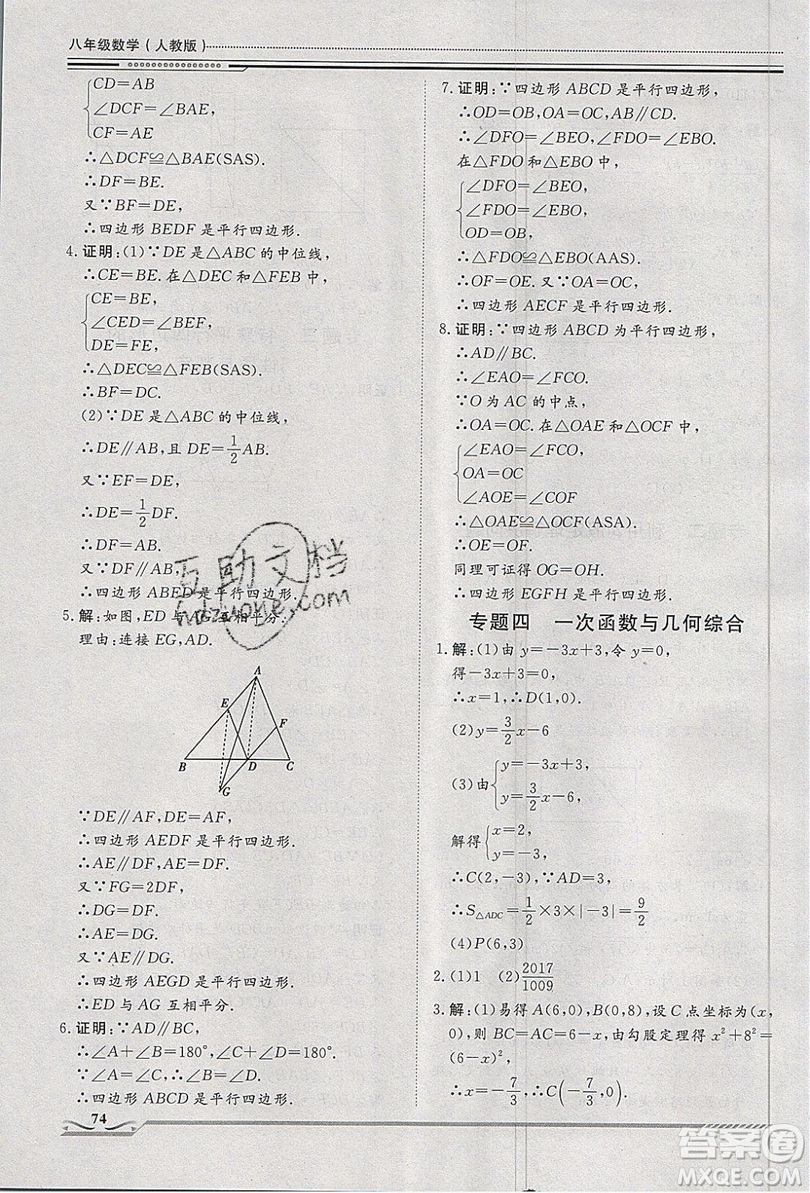 八年级数学(人教版)
CD=AB
∠DCF=∠BAE,
CF=AE
∴△DCF≌△BAE(SAS).
∴DF=BE.
又∵BF=DE,
∴四边形 BEDF 是平行四边形.
4. 证明:(1)∵DE是△ABC的中位线,
∴CE=BE. 在△DEC 和△FEB 中,
CE=BE,
∠CED=∠BEF,
DE=FE,
∴△DEC≌△FEB(SAS).
∴BF=DC.
(2)∵DE是△ABC的中位线,
∴DE∥AB,且 DE=1/2AB.
又∵EF=DE,
∴DE=1/2DF.
∴DF=AB.
∴四边形 ABED 是平行四边形.
5. 解:如图,ED 与 AG 互相平分.
理由:连接 EG,AD.
A
E
F
B
D
C
G
∵DE∥AF,DE=AF,
∴四边形 AEDF 是平行四边形.
∴AE∥DF,AE=DF.
又∵FG=2DF,
∴DG=DF.
∴AE=DG.
又∵AE∥DG.
∴四边形 AEGD 是平行四边形.
∴ED 与 AG 互相平分.
6. 证明:∵AD∥BC,
∴∠A+∠B=180°,∠C+∠D=180°.
∵∠A=∠C,∴∠B=∠D.
∴四边形 ABCD 是平行四边形.
74
7. 证明:∵四边形 ABCD 是平行四边形,
∴OD=OB,OA=OC,AB∥CD.
∴∠DFO=∠BEO,∠FDO=∠EBO.
在△FDO 和△EBO 中,
∠DFO=∠BEO,
∠FDO=∠EBO,
OD=OB,
∴△FDO≌△EBO(AAS).
∴OF=OE. 又∵OA=OC,
∴四边形 AECF 是平行四边形.
8. 证明:∵四边形 ABCD 为平行四边形,
∴AD∥BC.
∴∠EAO=∠FCO.
∵O为 AC 的中点,
∴OA=OC. 在△OAE 和△OCF 中,
∠EAO=∠FCO,
OA=OC
∠AOE=∠COF
∴△OAE≌△OCF(ASA).
∴OE=OF.
同理可证得 OG=OH.
∴四边形 EGFH 是平行四边形.
专题四 一次函数与几何综合
1. 解:(1)由 y=-3x+3,令 y=0,
得-3x+3=0,
∴x=1,∴D(1,0).
(2)y=3/2x-6
(3)由 y=-3x+3,
y=3/2x-6,
解得 x=2,
y=-3,
∴C(2,-3) ∵AD=3,
∴S△ADC=1/2×3×|-3|=9/2
(4)P(6,3)
2. (1)1 (2)2017/1009
3. 解:(1)易得 A(6,0),B(0,8),设 C 点坐标为(x,
0),则 BC=AC=6-x,由勾股定理得 x²+8²=
(6-x)²,
∴x=-7/3,∴C(-7/3,0).
互助文档
hdzuone.com
答案圈
MXQE.COM